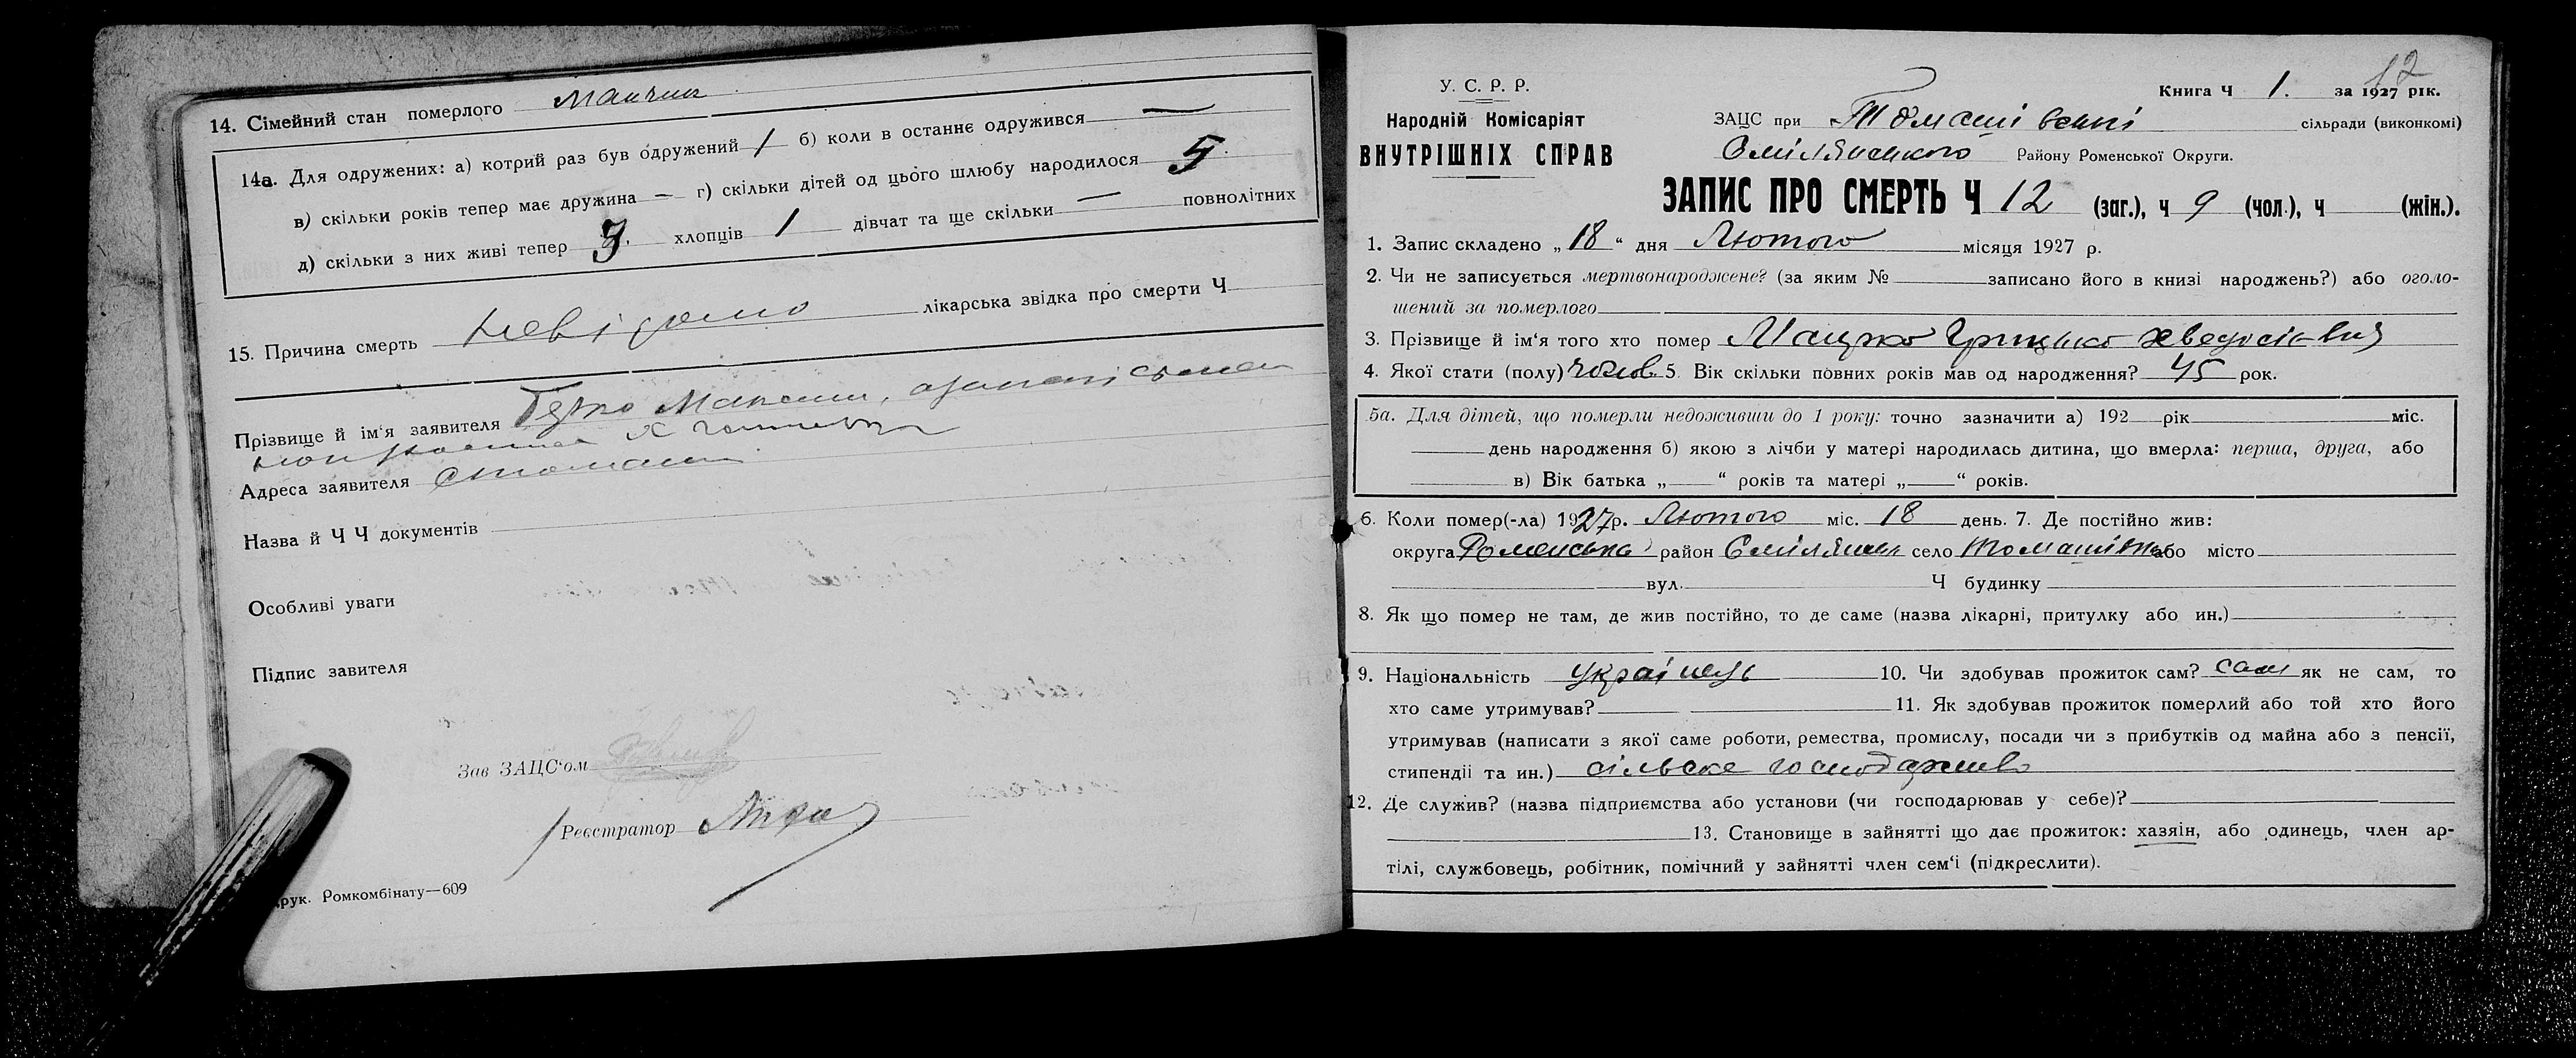 14. Сімейний стан померлого
14а. Для одружених: а) котрий раз був одружений 1 б) коли в останнє одружився —
в) скільки років тепер має дружина — г) скільки дітей од цього шлюбу народилося 5
д) скільки з них живі тепер 3 хлопців 1 дівчат та ще скільки — повнолітних
15. Причина смерть невідомо лікарська звідка про смерти Ч
Прізвище й ім'я заявителя
Адреса заявителя
Назва й Ч Ч документів
Особливі уваги
Підпис завителя
Зав ЗАЦС'ом
Реєстратор
рук. Ромкомбінату—609
12
У. С. Р. Р.
Народній Комісаріят
ВНУТРІШНІХ СПРАВ
Книга Ч 1. за 1927 рік.
ЗАЦС при Томашівській сільради (виконкомі)
Смілянського Району Роменської Округи.
ЗАПИС ПРО СМЕРТЬ Ч 12 (заг.), ч 9 (чол.), ч (жін.).
1. Запис складено „18“ дня Лютого місяця 1927 р.
2. Чи не записується мертвонароджене? (за яким № записано його в книзі народжень?) або оголо-
шений за померлого
3. Прізвище й ім'я того хто помер Мацько Грицько Хведосієвич
4. Якої стати (полу) чолов. 5 Вік скільки повних років мав од народження? 45 рок.
5а. Для дітей, що померли недоживши до 1 року: точно зазначити а) 192 рік міс.
день народження б) якою з лічби у матері народилась дитина, що вмерла: перша, друга, або
в) Вік батька „ “ років та матері „ “ років.
6. Коли помер(-ла) 1927р. Лютого міс. 18 день. 7. Де постійно жив:
округа Роменська район село або місто
вул. Ч будинку
8. Як що помер не там, де жив постійно, то де саме (назва лікарні, притулку або ин.)
9. Національність Українець 10. Чи здобував прожиток сам? сам як не сам, то
хто саме утримував? 11. Як здобував прожиток померлий або той хто його
утримував (написати з якої саме роботи, ремества, промислу, посади чи з прибутків од майна або з пенсії,
стипендії та ин.) сільське господарство
12. Де служив? (назва підприємства або установи (чи господарював у себе)?
13. Становище в зайнятті що дає прожиток: хазяін, або одинець, член ар-
тілі, службовець, робітник, помічний у зайнятті член сем'і (підкреслити).